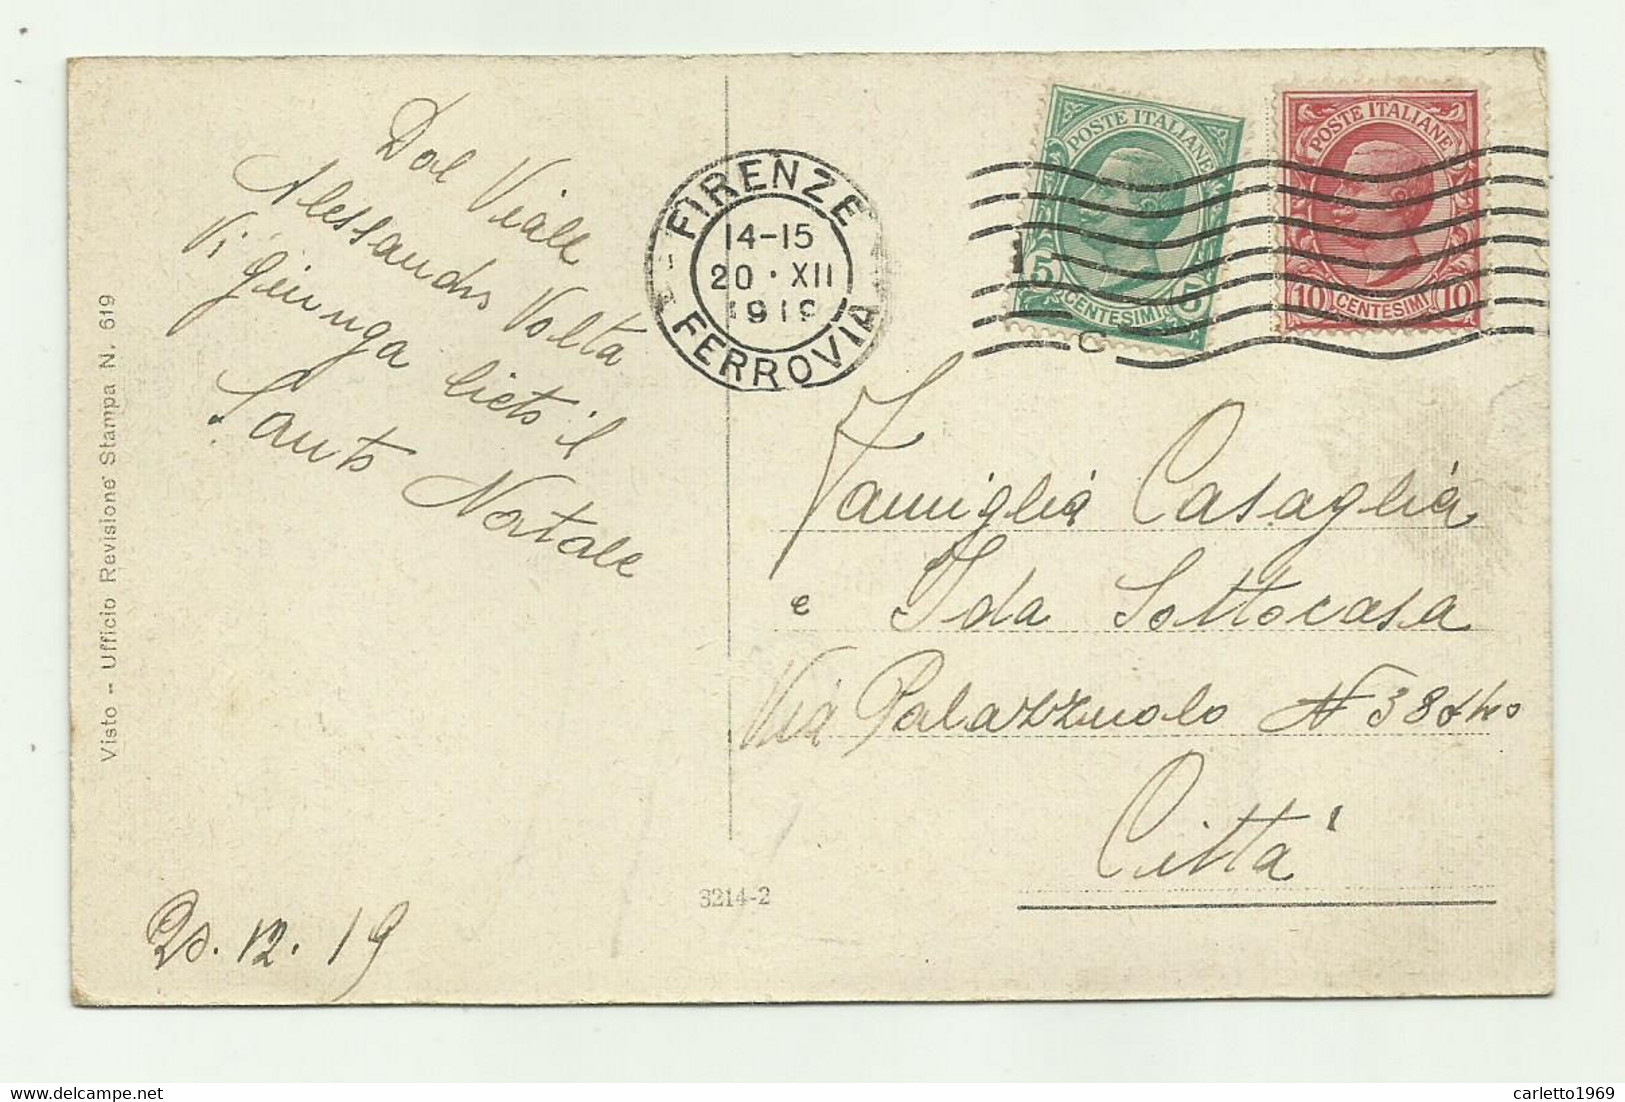 Dal Viale
Alessandro Volta
Vi giunga lieto il
Santo Natale
20.12.19
Visto -- Ufficio Revisione Stampa N. 619
FIRENZE
14-15
20 · XII
1919
FERROVIA
POSTE ITALIANE
5 CENTESIMI 5
POSTE ITALIANE
10 CENTESIMI 10
Famiglia Casaglia
e Ida Sottocasa
Via Palazzuolo N 38
Città
3214-2
carletto1969